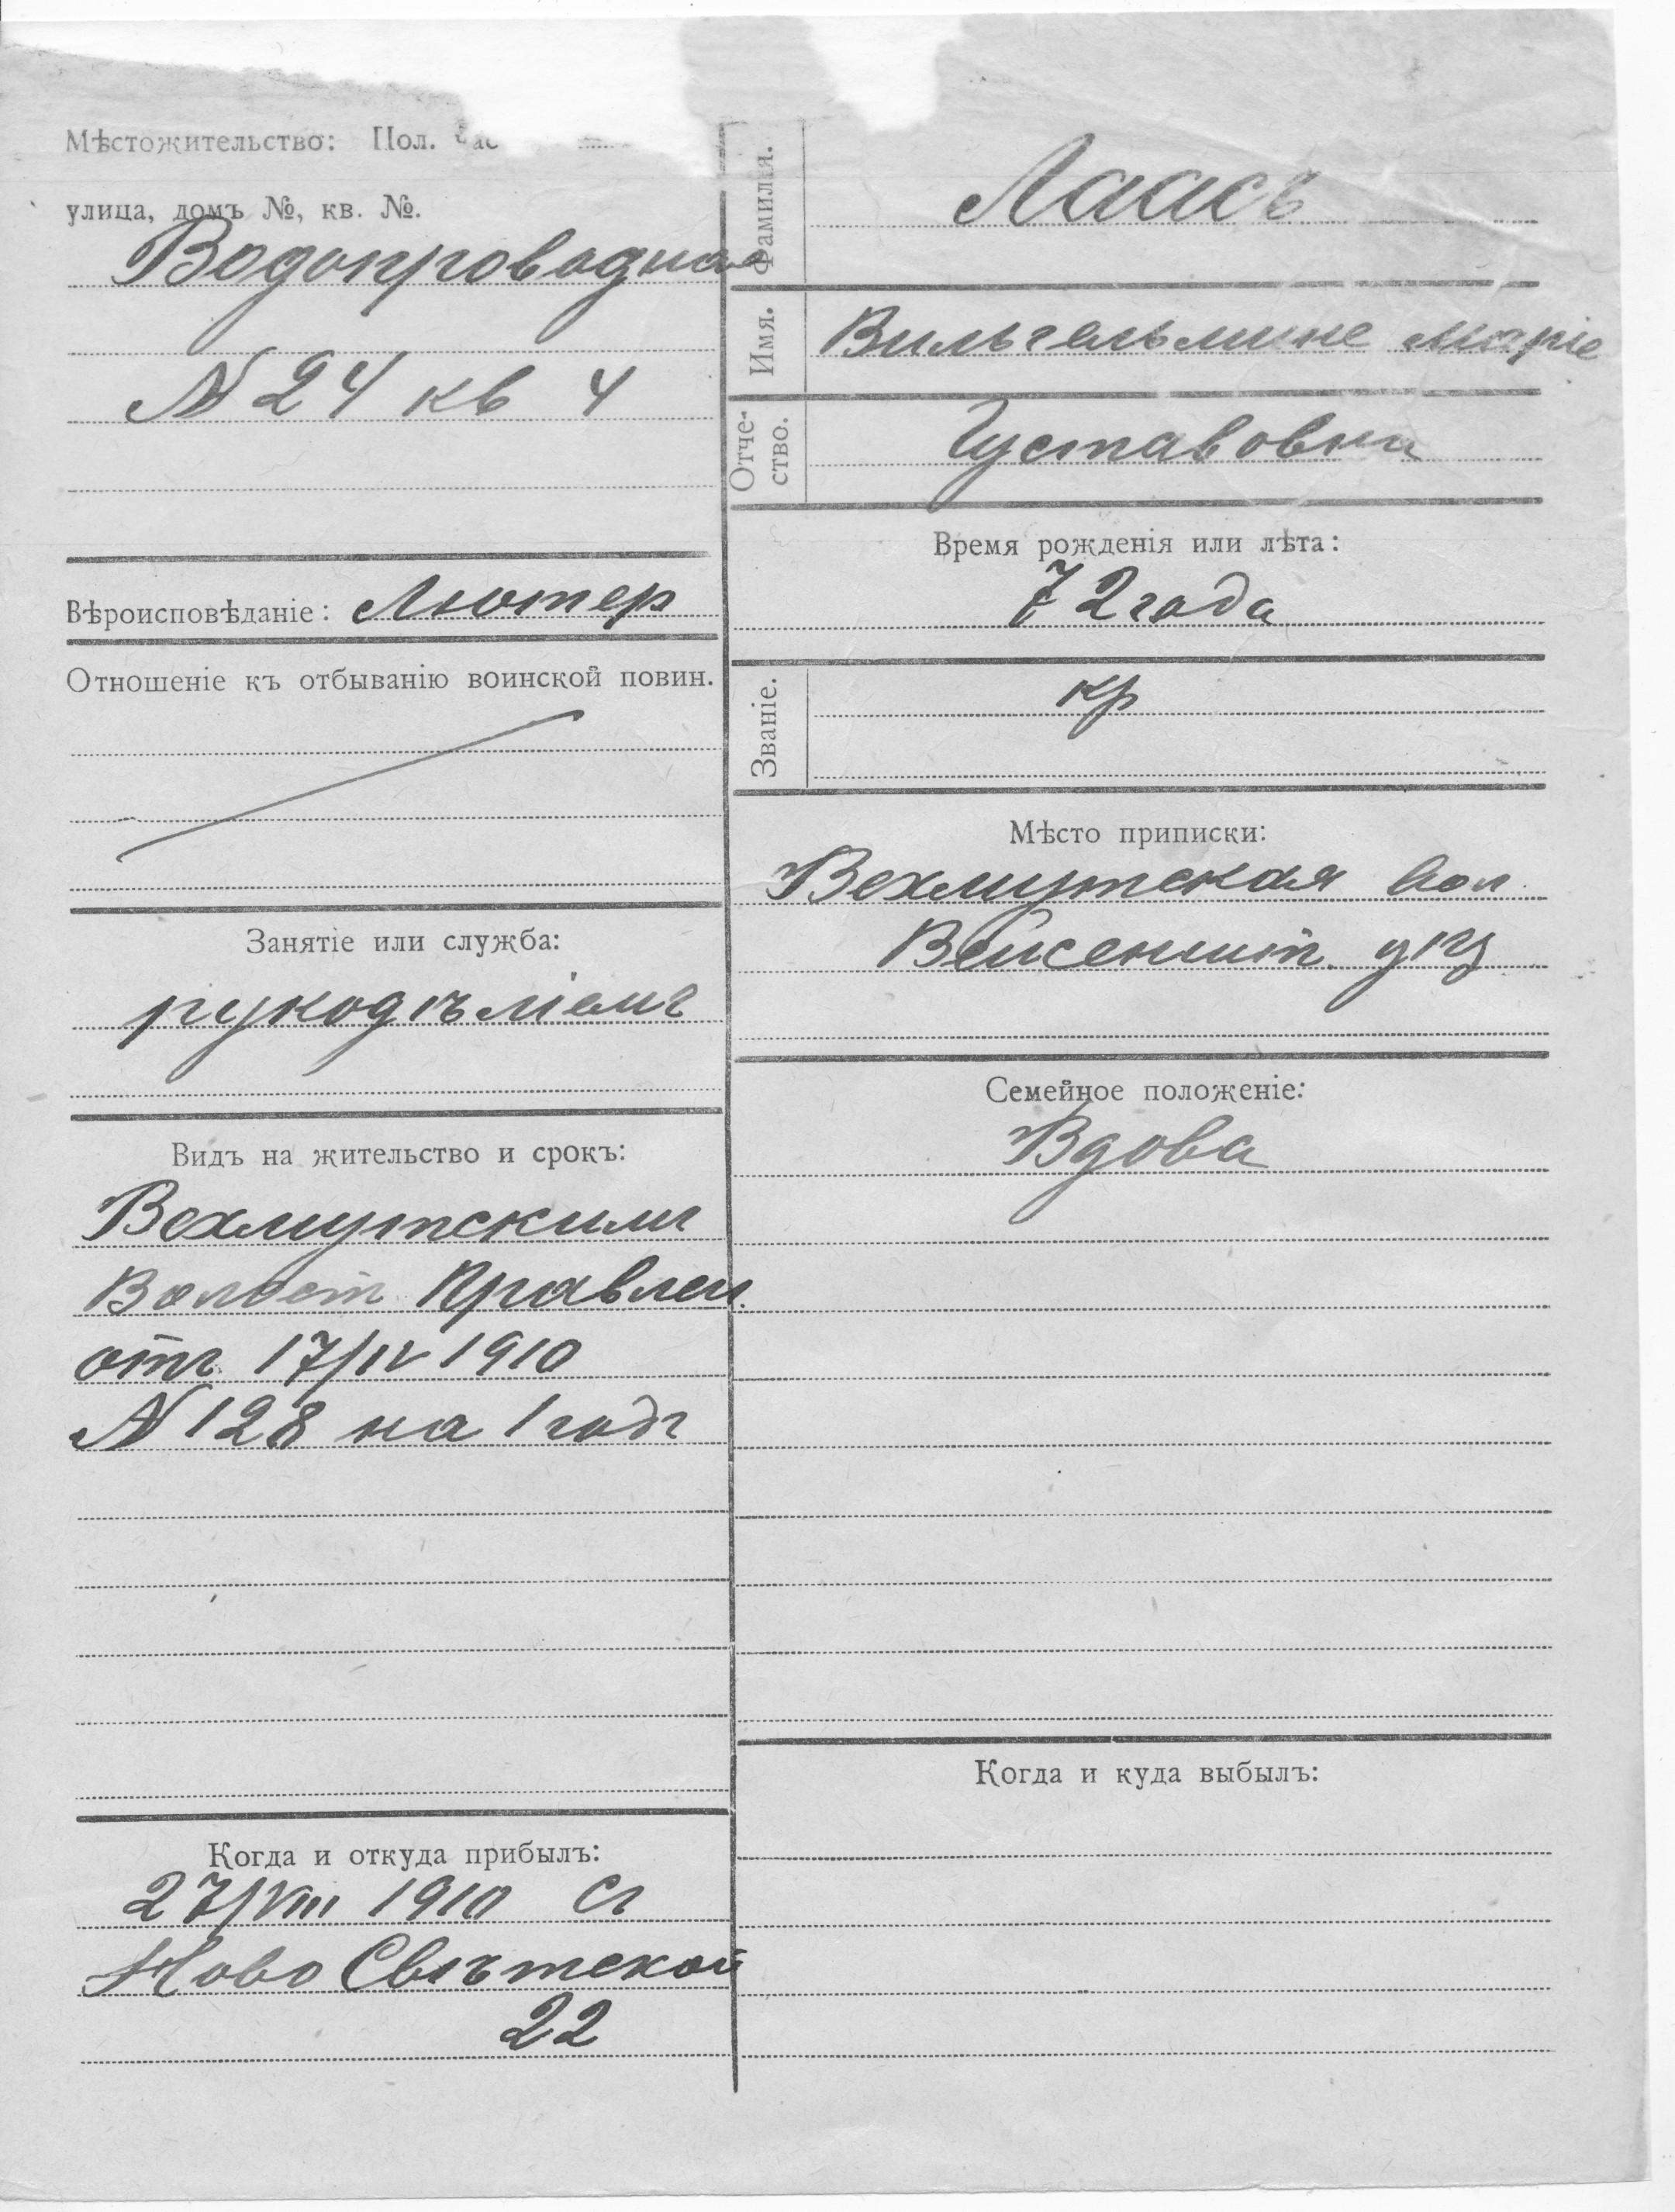 Мѣстожительство: Пол.
улица, домъ №, кв. №.
Водопроводная
N 24 кв 4
Вѣроисповѣданіе: Лютер
Отношеніе къ отбыванію воинской повин.
Занятіе или служба:
рукодѣліемъ
Видъ на жительство и срокъ:
Вехмутскимъ
Волост Правлен.
отъ 17/IV 1910
N 128 на 1 годъ
Когда и откуда прибылъ:
27/VIII 1910 Съ
Ново Свѣтской
22
Фамилія.
Лаасъ
Имя.
Вильгельмине Маріе
Отче-
ство.
Густавовна
Время рожденія или лѣта:
72 года
Званіе.
кр
Мѣсто приписки:
Вехмутская вол.
Вейсеншт. у
Семейное положеніе:
Вдова
Когда и куда выбылъ: